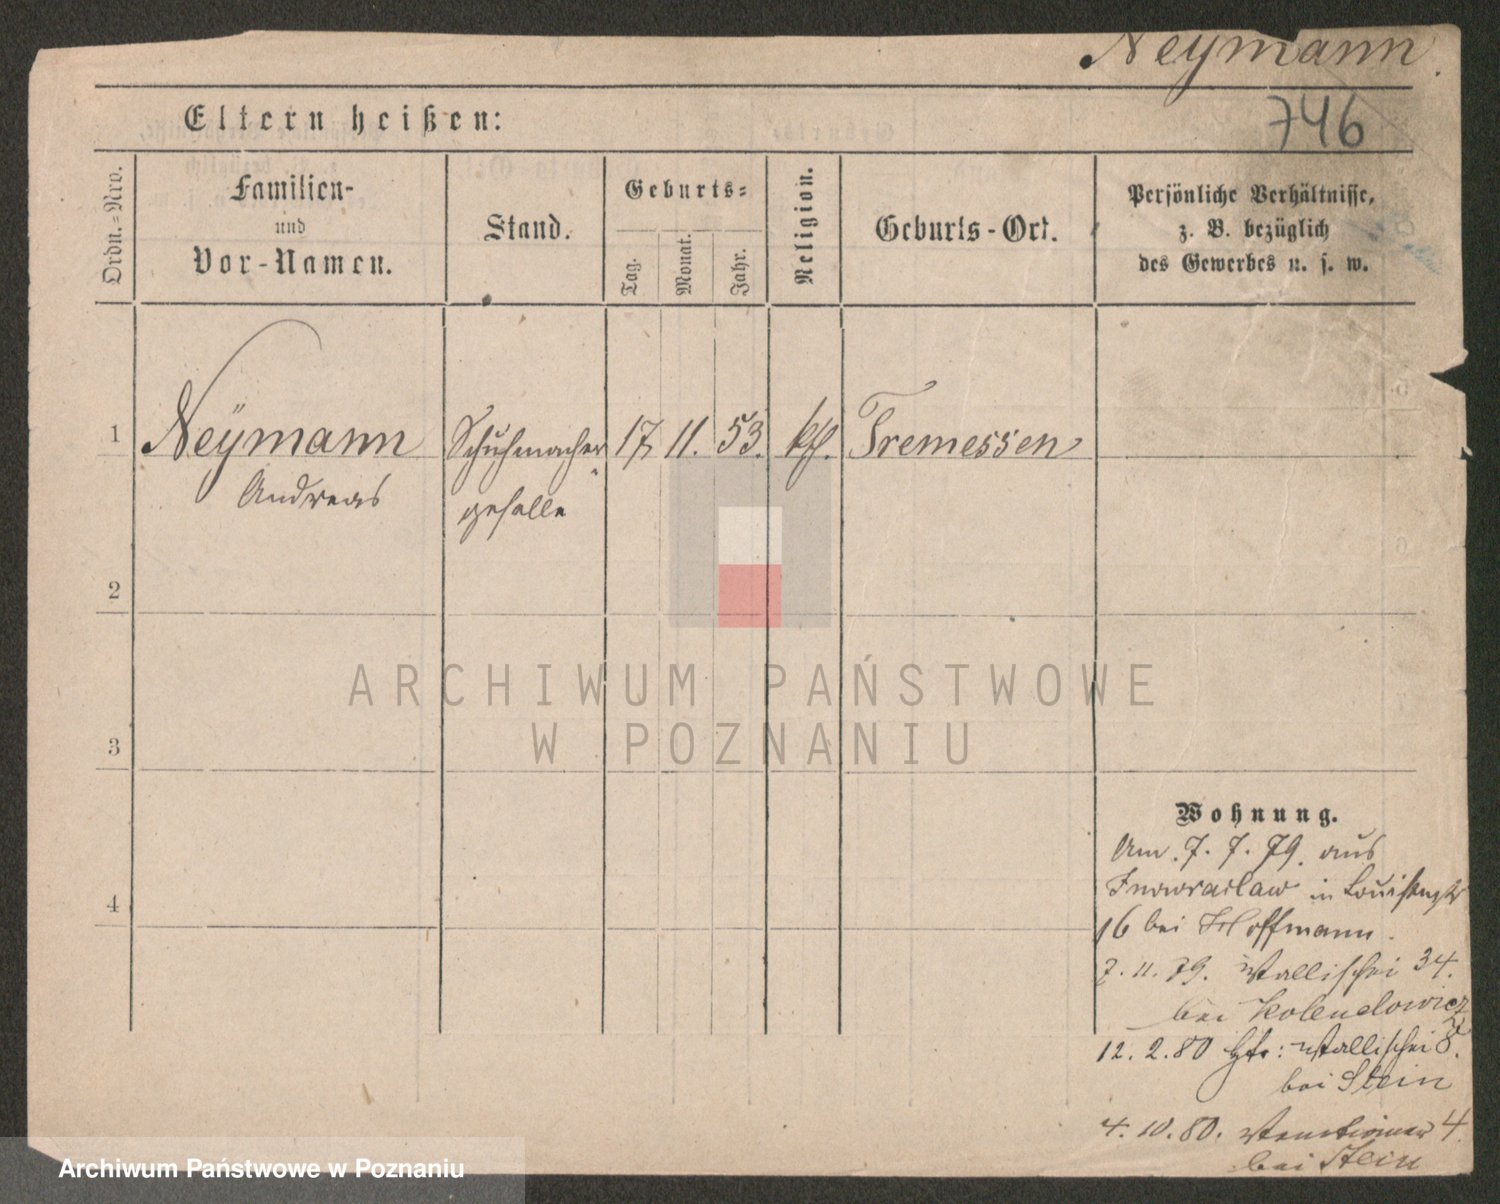 Neymann.
746
Eltern heißen:
Ordn.=Nro.
Familien-
und
Vor-Namen.
Stand.
Geburts=
Tag.
Monat.
Jahr.
Religion.
Geburts-Ort.
Persönliche Verhältnisse,
z. B. bezüglich
des Gewerbes u. s. w.
1
Neÿmann
Andreas
Schuhmacher
geselle
17
11.
53.
kth.
Tremessen
2
3
4
Wohnung.
Am 7. 7. 79. aus
Inowraclaw in
16 bei Hoffmann.
7. 11. 79. Wallischei 34.
bei
12. 2. 80 Wallischei 8.
bei Stein
4. 10. 80. 4.
bei Stein
ARCHIWUM PAŃSTWOWE
W POZNANIU
Archiwum Państwowe w Poznaniu